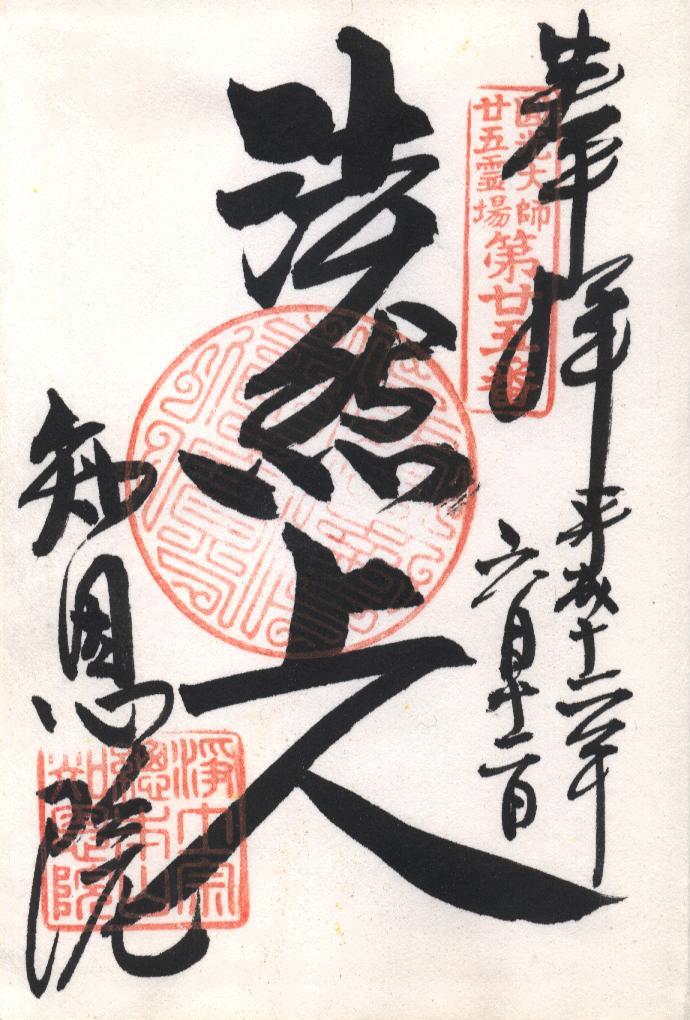 奉拝
平成十二年
六月十二日
圓光大師
廿五霊場
第廿五番
法然上人
知恩院
浄土宗
總本山
知恩院